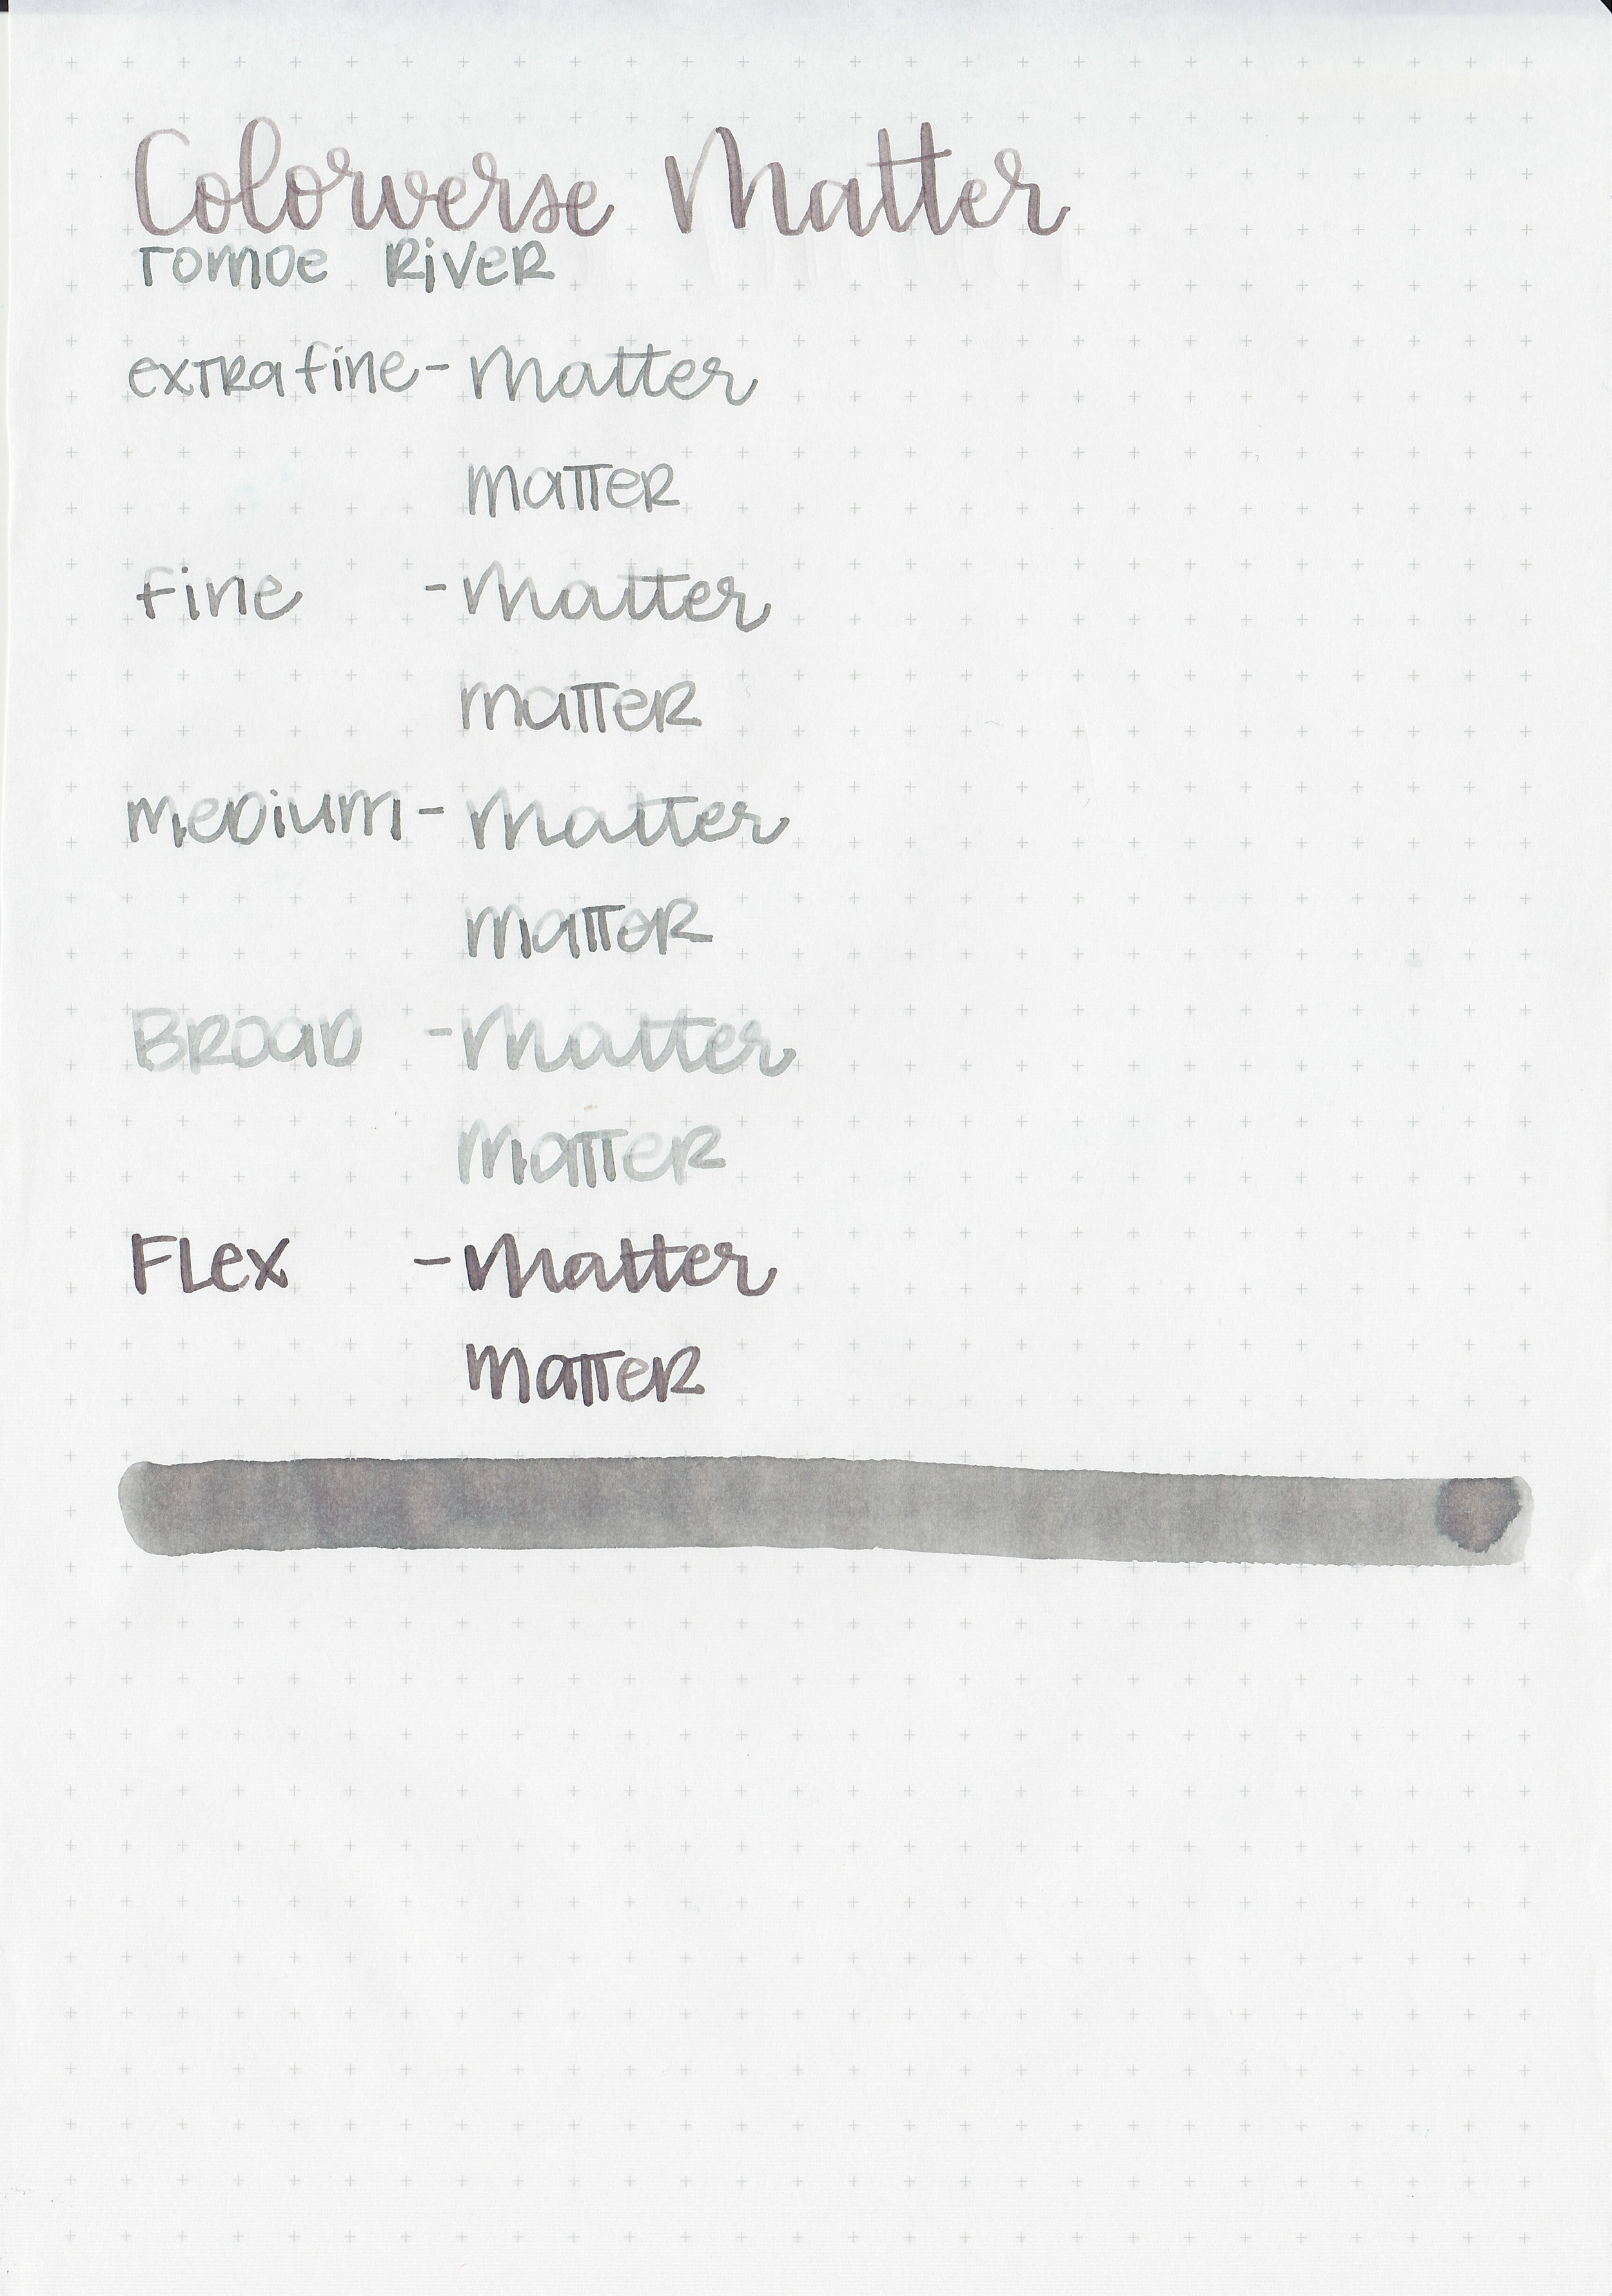 Colorverse Matter
Tomoe River
extra fine - Matter
matter
fine - Matter
matter
medium - Matter
matter
Broad - Matter
matter
Flex - Matter
matter